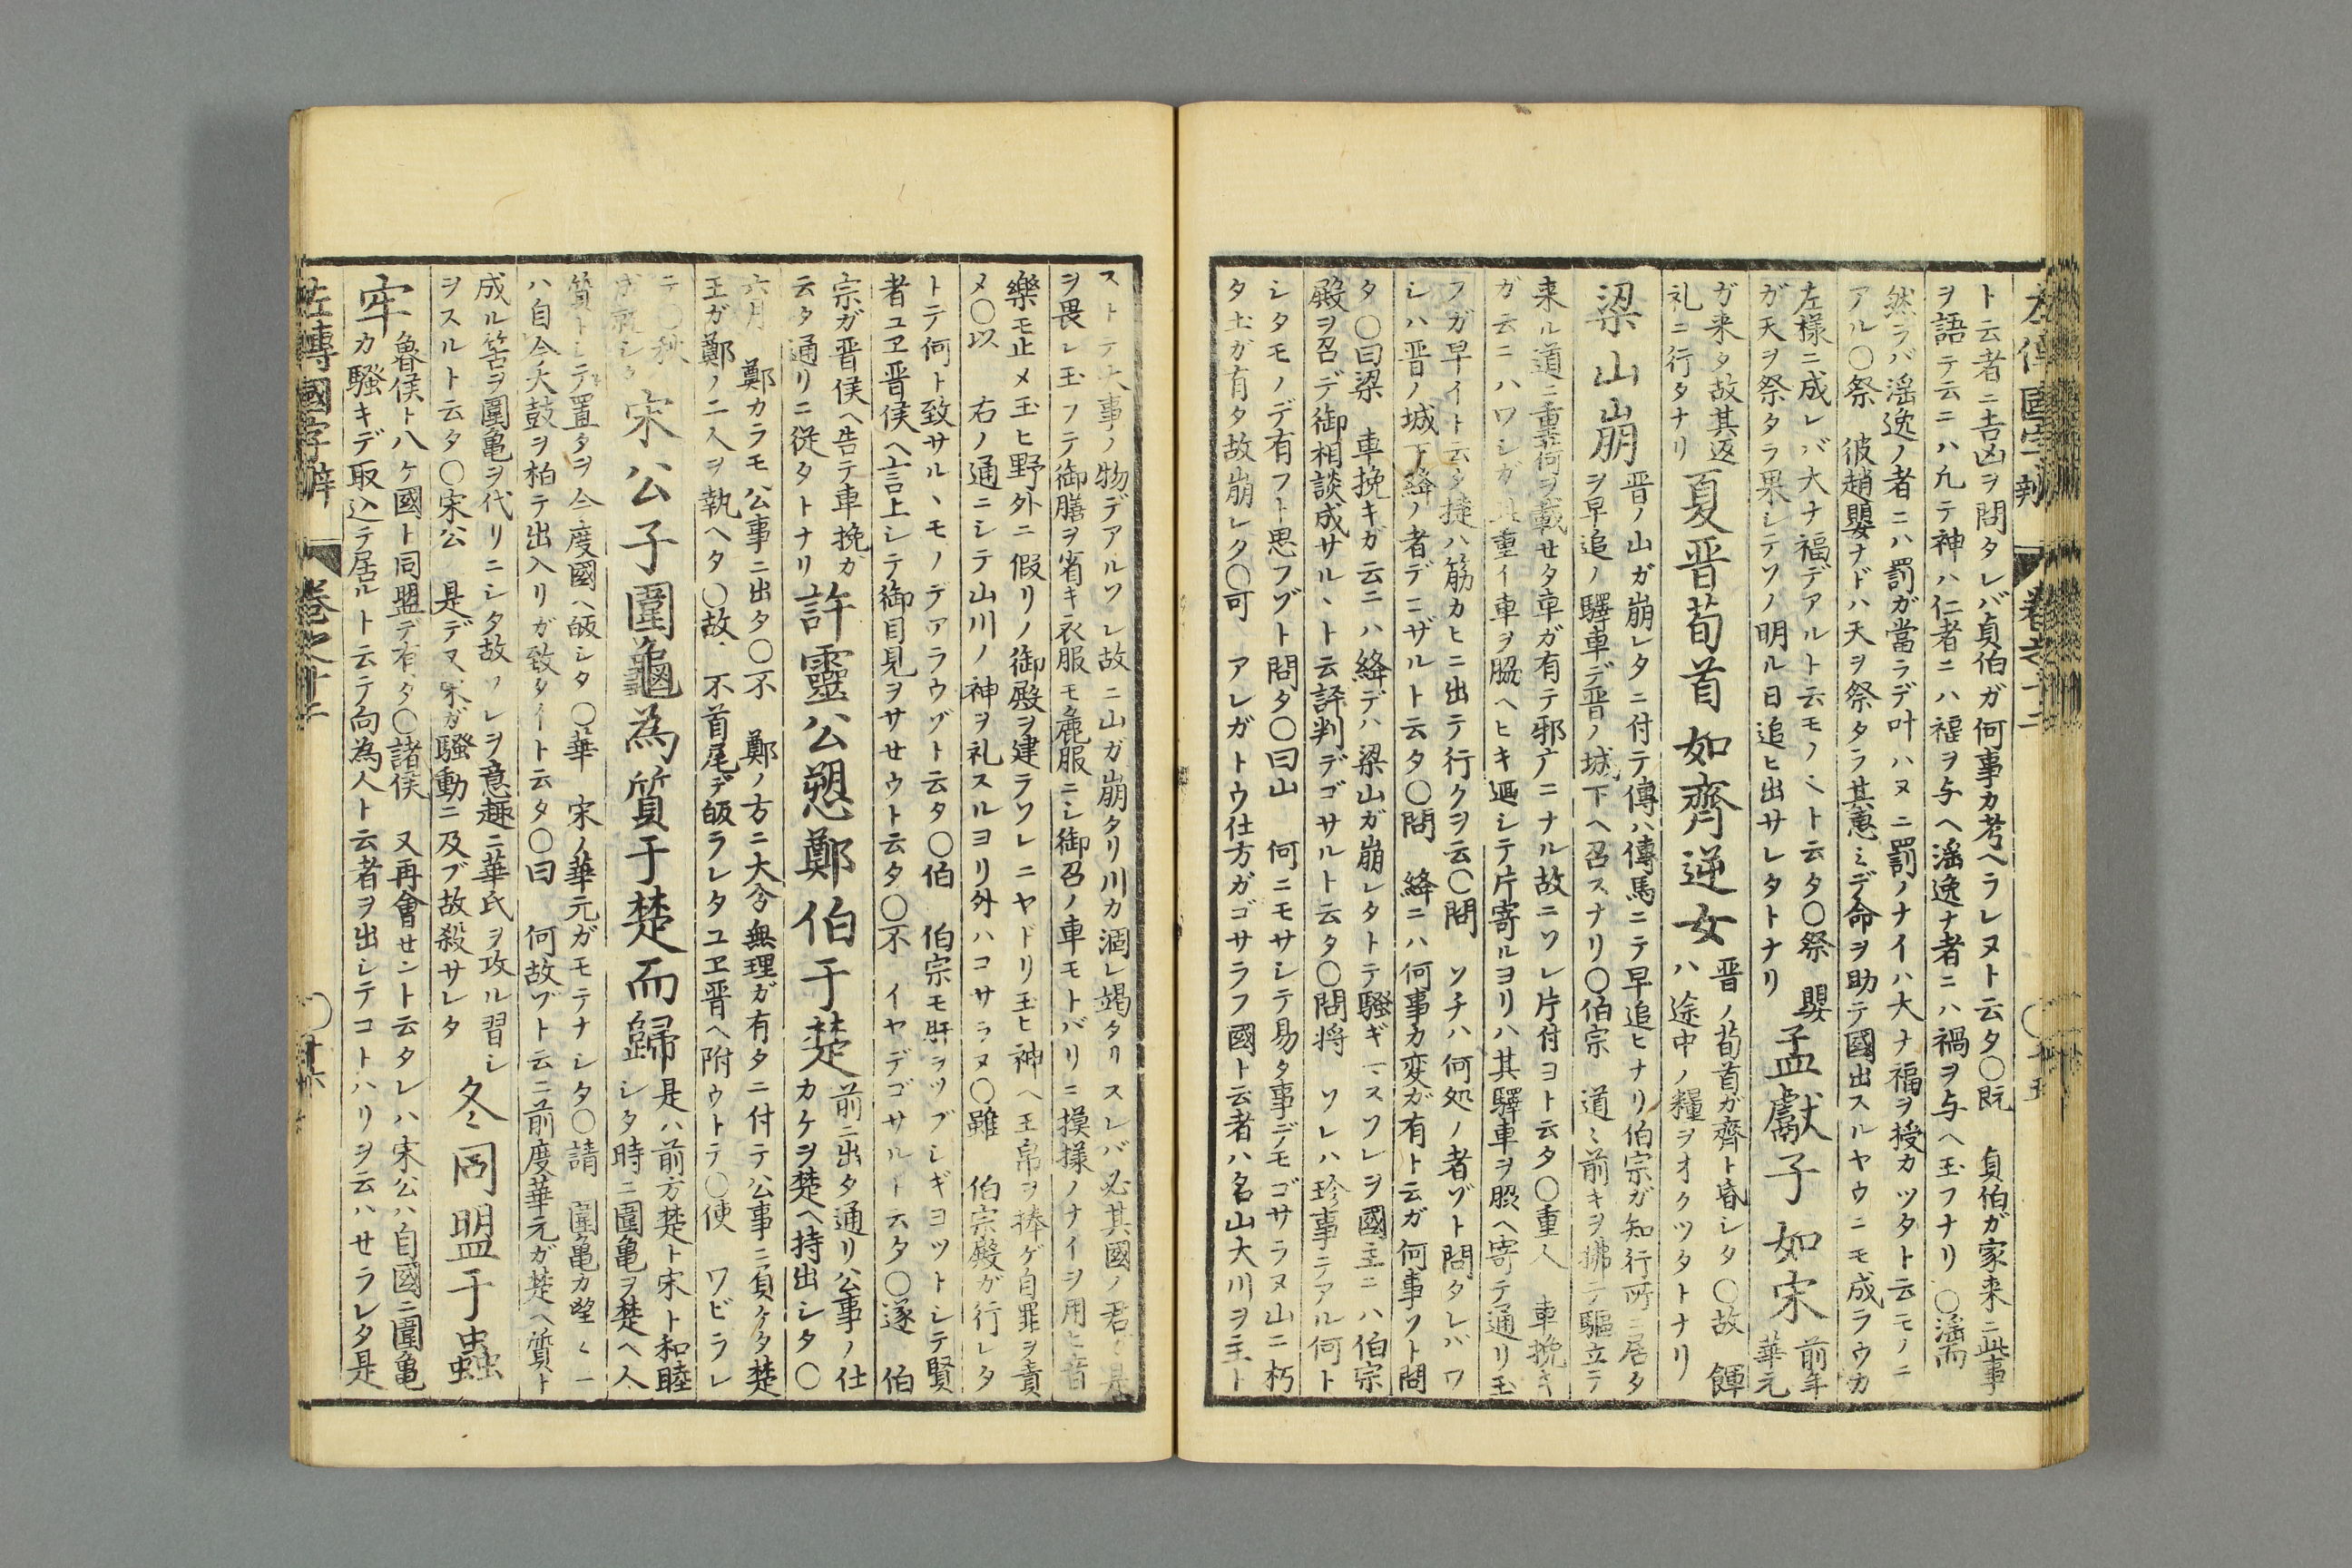 ト云者ニ吉凶ヲ問タレバ貞伯ガ何事カ考ヘラレヌト云タ〇既 貞伯ガ家来ニ此事
ヲ語テ云ニハ凢テ神ハ仁者ニハ福ヲ与ヘ滛逸ナ者ニハ禍ヲ与ヘ玉フナリ〇滛而
然ラバ滛逸ノ者ニハ罰ガ當ラデ叶ハヌニ罰ノナイハ大ナ福ヲ授カツタト云モノニ
アル〇祭 彼趙嬰ナドハ天ヲ祭タラ其惠ミデ命ヲ助テ國出スルヤウニモ成ラウカ
左様ニ成レバ大ナ福デアルト云モノヽト云タ〇祭 嬰
ガ天ヲ祭タラ果シテソノ明ル日追ヒ出サレタトナリ
孟獻子如宋
前年華元
ガ来タ故其返
礼ニ行タナリ
夏晋荀首如齊逆女
晋ノ荀首ガ齊ト昏シタ〇故 餫
ハ途中ノ糧ヲオクツタトナリ
梁山崩
晋ノ山ガ崩レタニ付テ傳ハ傳馬ニテ早追ヒナリ伯宗ガ知行所ニ居タ
ヲ早追ノ驛車デ晋ノ城下ヘ召スナリ〇伯宗 道ミ前キヲ拂テ驅立テ
来ル道ニ重荷ヲ載せタ車ガ有テ邪广ニナル故ニソレ片付ヨト云タ〇重人 車挽キ
ガ云ニハワシガ此重イ車ヲ脇ヘヒキ廻シテ片寄ルヨリハ其驛車ヲ脇ヘ寄テ通リ玉
フガ早イト云タ捷ハ筋カヒニ出テ行クヲ云〇問 ソチハ何処ノ者ゾト問タレバワ
シハ晋ノ城下絳ノ者デコザルト云タ〇問 絳ニハ何事カ変ガ有ト云ガ何事ソト問
タ〇曰梁 車挽キガ云ニハ絳デハ梁山ガ崩レタトテ騒ギマスソレヲ國主ニハ伯宗
殿ヲ召デ御相談成サルヽト云評判デゴサルト云タ〇問将 ソレハ珍事ニアル何ト
シタモノデ有フト思フゾト問タ〇曰山 何ニモサシテ易タ事デモゴサラヌ山ニ朽
タ土ガ有タ故崩レタ〇可 アレガトウ仕方ガゴサラフ國ト云者ハ名山大川ヲ主ト
ストテ大事ノ物デアルソレ故ニ山ガ崩タリ川カ涸レ竭タリスレバ必其國ノ君ハ是
ヲ畏レ玉フテ御膳ヲ省キ衣服モ麁服ニシ御召ノ車モトバリニ摸様ノナイヲ用ヒ音
樂モ止メ玉ヒ野外ニ假リノ御殿ヲ建ラソレニヤドリ玉ヒ神ヘ玉帛ヲ捧ゲ自罪ヲ責
メ〇以 右ノ通ニシテ山川ノ神ヲ礼スルヨリ外ハコサラヌ〇雖 伯宗殿ガ行レタ
トテ何ト致サルヽモノデアラウゾト云タ〇伯 伯宗モ肝ヲツブシギヨツトシテ賢
者ユヱ晋侯ヘ言上シテ御目見ヲサせウト云タ〇不 イヤデゴサルト云タ〇遂 伯
宗ガ晋侯ヘ告テ車挽カ
云タ通リニ従タトナリ
許靈公愬鄭伯于楚
前ニ出タ通リ公事ノ仕
カケヲ楚ヘ持出シタ〇
六月 鄭カラモ公事ニ出タ〇不 鄭ノ方ニ大分無理ガ有タニ付テ公事ニ負ケタ楚
王ガ鄭ノ二人ヲ執ヘタ〇故 不首尾デ皈ラレタユヱ晋ヘ附ウトテ〇使 ワビラレ
テ〇秋
ガ就シタ
宋公子圍龜為質于楚而歸
是ハ前方楚ト宋ト和睦
シタ時ニ圍亀ヲ楚ヘ人
質トシテ置タヲ今度國ヘ皈シタ〇華 宋ノ華元ガモテナシタ〇請 圍亀カ望ミ
ハ自今大鼓ヲ柏テ出入リガ致タイト云タ〇曰 何故ゾト云ニ前度華元ガ楚ヘ質ト
成ル筈ヲ圍亀ヲ代リニシタ故ソレヲ意趣ニ華氏ヲ攻ル習シ
ヲスルト云タ〇宋公 是デヌ宋ガ騒動ニ及ブ故殺サレタ
冬同盟于蟲
牢
魯侯ト八ケ國ト同盟デ有タ〇諸侯 又再會せント云タレハ宋公ハ自國ニ圍亀
カ騒キデ取込テ居ルト云テ向為人ト云者ヲ出シテコトハリヲ云ハせラレタ是
左傳國字辯 巻之十二 〇十六